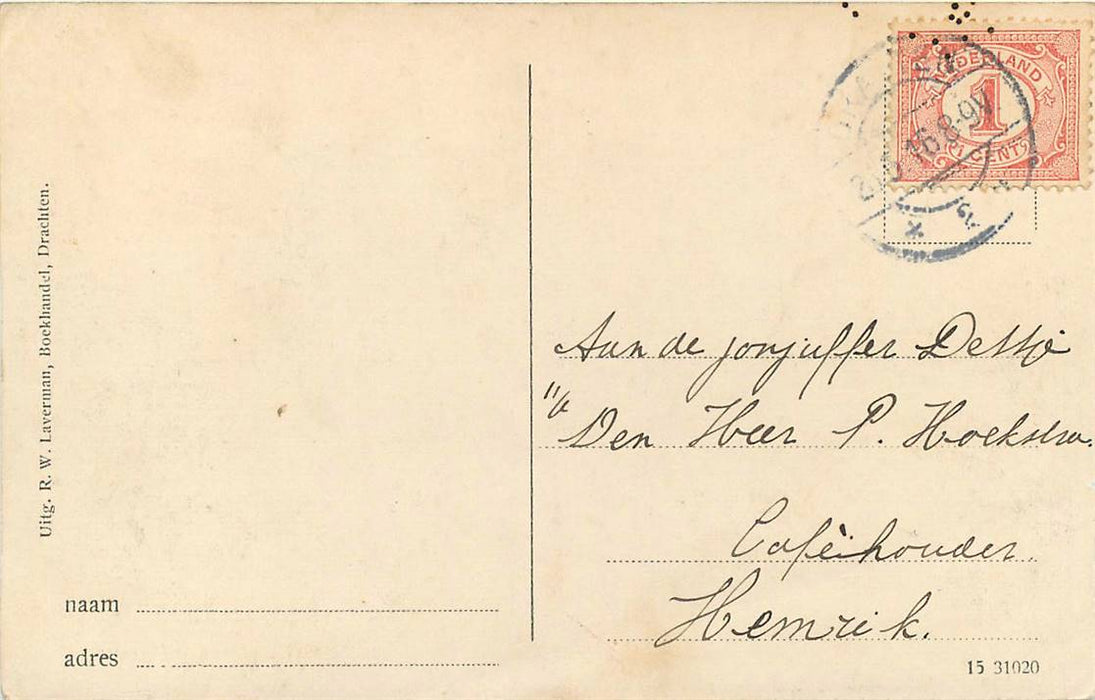 Uitg. R. W. Laverman, Boekhandel, Drachten.
NEDERLAND
1
1 CENT
16.8-9V
Aan de jonjuffer Dettje
Den Heer P. Hoekstra.
Caféhouder.
Hemrik.
naam
adres
15 31020